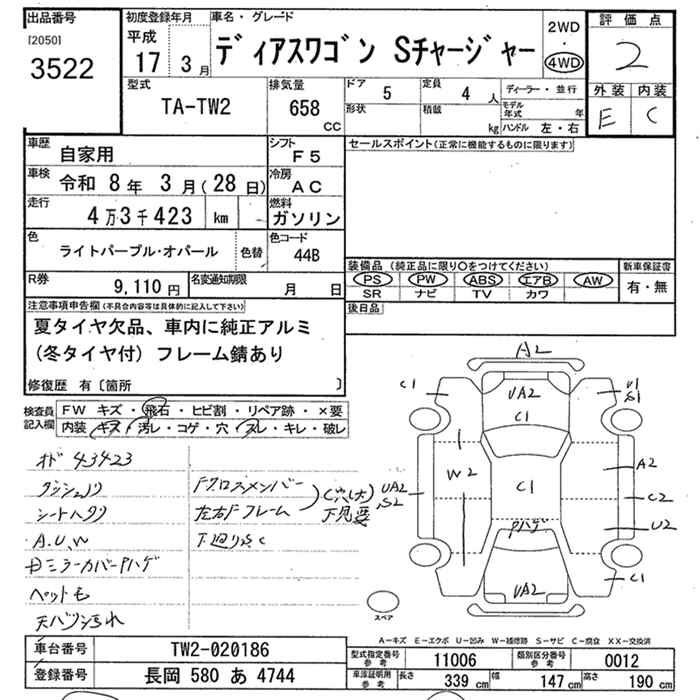 出品番号
[2050]
3522
初度登録年月
平成
17 3月
車名・グレード
ディアスワゴン Sチャージャー
2WD
・
4WD
評価点
2
外装 内装
E C
型式
TA-TW2
排気量
658
CC
ドア
5
定員
4 人
ディーラー・並行
形状
積載
kg
モデル年式
年
ハンドル 左・右
車歴
自家用
シフト
F5
車検
令和 8年 3月(28日)
冷房
AC
走行
4万3千423 km
燃料
ガソリン
色
ライトパープル・オパール
色替
色コード
44B
R券
9,110円
名変通知期限
月 日
セールスポイント(正常に機能するものに限ります)
装備品 (純正品に限り○をつけてください)
PS PW ABS エアB AW
SR ナビ TV カワ
新車保証書
有・無
後日品
注意事項申告欄(不具合内容等は具体的に記入して下さい)
夏タイヤ欠品、車内に純正アルミ
(冬タイヤ付) フレーム錆あり
修復歴 有〔箇所 〕
検査員
記入欄
FW キズ・飛石・ヒビ割・リペア跡・×要
内装・キズ・汚レ・コゲ・穴・スレ・キレ・破レ
オド 43423
シートハタ
A.U.W
ミラーカバーPハゲ
ペットも
Fクロスメンバー
左右Fフレーム
穴(大)
下見要
下廻り
A2
UA2
C1
C1
U1
S1
W2
C1
A2
UA2
S2
C2
U2
Pハゲ
C1
UA2
スペア
A-キズ E-エクボ U-凹み W-補修跡 S-サビ C-腐食 XX-交換済
車台番号
TW2-020186
登録番号
長岡 580 あ 4744
型式指定番号
参考
11006
類別区分番号
参考
0012
車庫証明用
参考
長さ
339 cm
幅
147 cm
高さ
190 cm